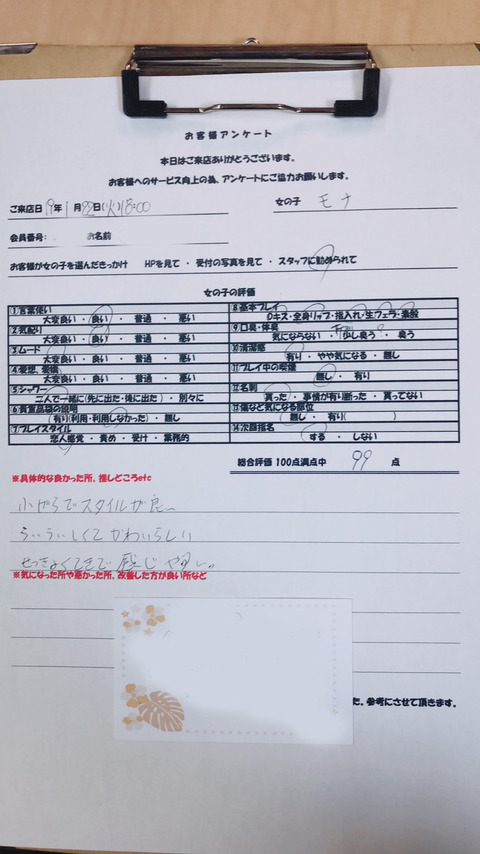 お客様アンケート
本日はご来店ありがとうございます。
お客様へのサービス向上の為、アンケートにご協力お願いします。
ご来店日 19年 1月 22日(火)18:00 女の子 モナ
会員番号: お名前
お客様が女の子を選んだきっかけ HPを見て ・ 受付の写真を見て ・ スタッフに勧められて
女の子の評価
①言葉使い
大変良い ・ 良い ・ 普通 ・ 悪い
②気配り
大変良い ・ 良い ・ 普通 ・ 悪い
③ムード
大変良い ・ 良い ・ 普通 ・ 悪い
④愛想、愛嬌
大変良い ・ 良い ・ 普通 ・ 悪い
⑤シャワー
二人で一緒に(先に出た・後に出た) ・ 別々に
⑥貴重品袋の説明
(有り(利用・利用しなかった) ・ 無し
⑦プレイスタイル
恋人感覚 ・ 責め ・ 受け ・ 業務的
⑧基本プレイ
Dキス・全身リップ・指入れ・生フェラ・素股
⑨口臭・体臭
気にならない ・ 少し臭う ・ 臭う
⑩清潔感
有り ・ やや気になる ・ 無し
⑪プレイ中の喫煙
無し ・ 有り
⑫名刺
貰った ・ 事情が有り断った ・ 貰ってない
⑬傷など気になる部位
無し ・ 有り( )
⑭次回指名
する ・ しない
総合評価 100点満点中 99 点
※具体的な良かった所、推しどころetc
小がらでスタイルが良い
ういういしくてかわいらしい
せっきょくてきで感じやすい。
※気になった所や悪かった所、改善した方が良い所など
た。参考にさせて頂きます。